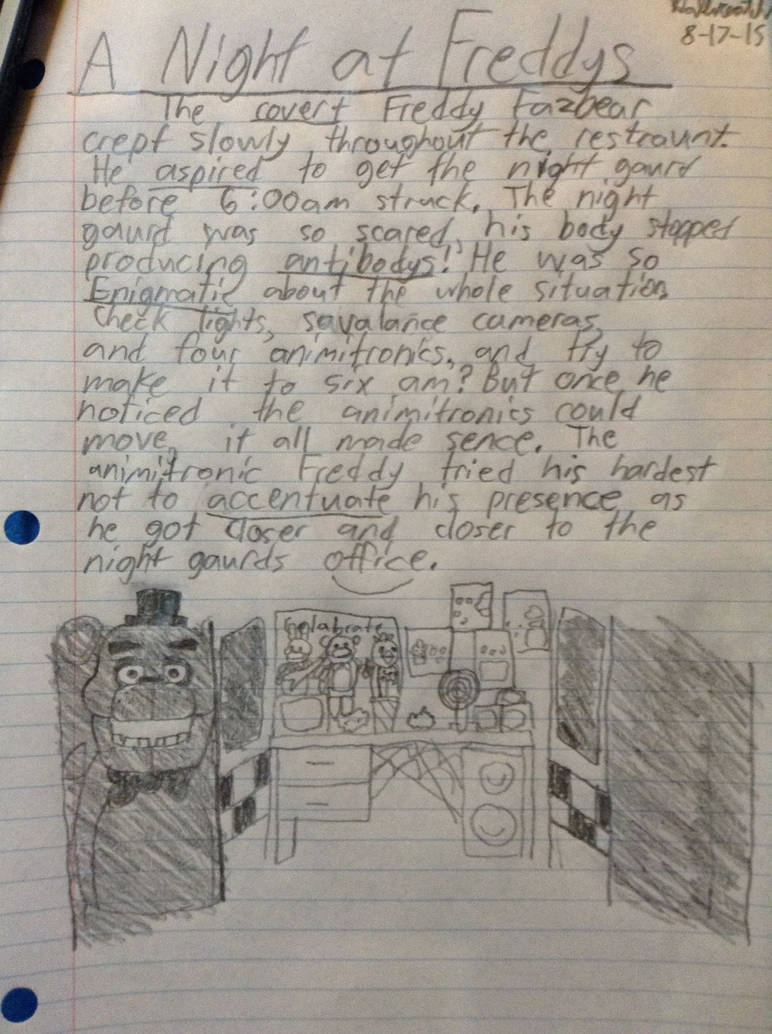 8-17-15
A Night at Freddys
The covert Freddy Fazbear
crept slowly throughout the restraunt.
He aspired to get the night gaurd
before 6:00am struck. The night
gaurd was so scared, his body stopped
producing antibodys! He was so
Enigmatic about the whole situation,
Check lights, savalance cameras,
and four animitronics, and try to
make it to six am? But once he
noticed the animitronics could
move, it all made sence. The
animitronic Freddy tried his hardest
not to accentuate his presence as
he got closer and closer to the
night gaurds office.
Celabrate